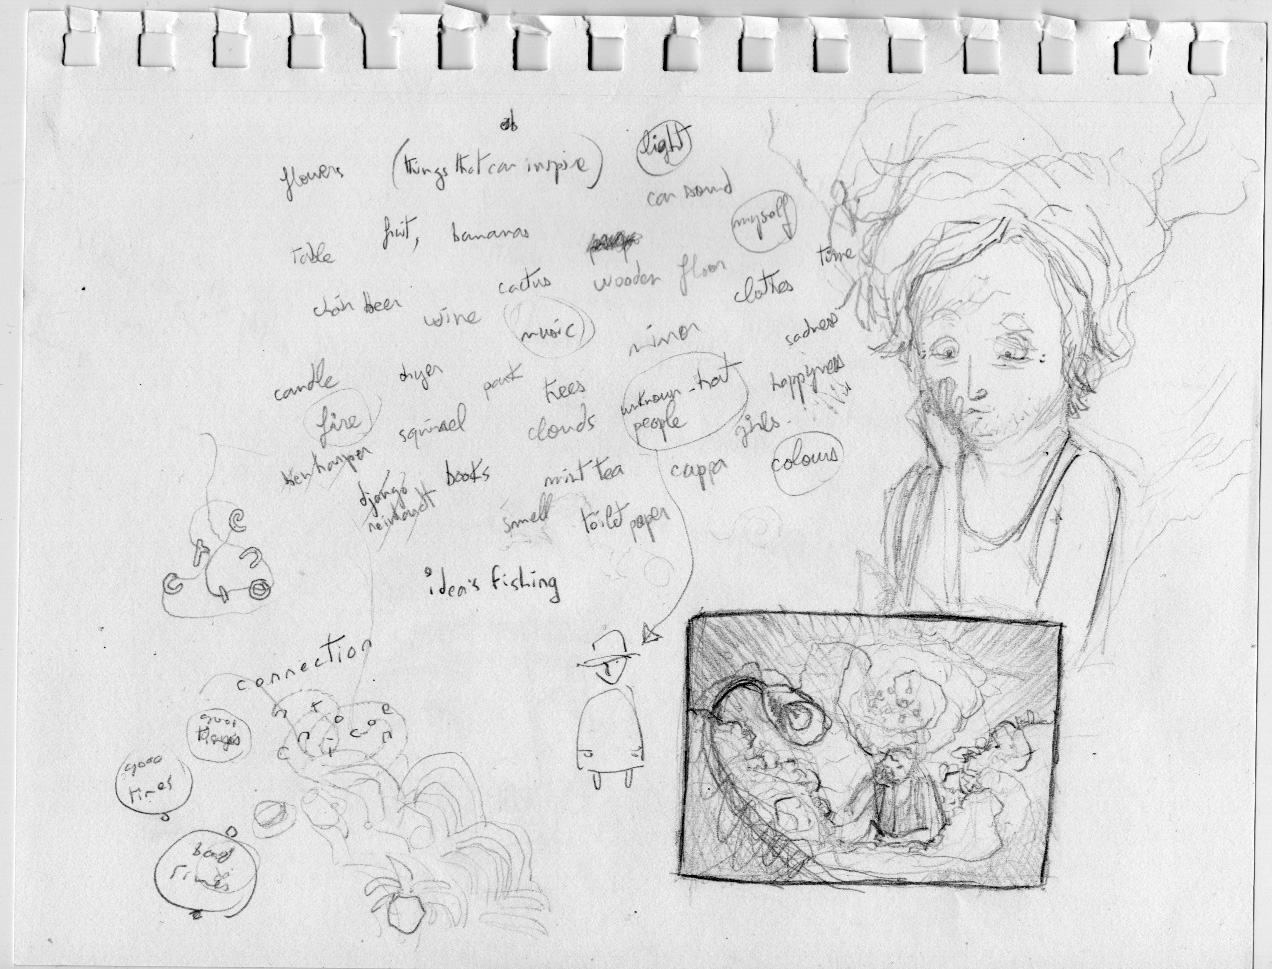 flowers (things that can inspire) light
car sound
Table fruit, bananas myself
cactus wooden floor time
wine music mirror clothes
candle dryer park trees unknown-hat people happyness sadness
fire squirrel clouds girls
ben harper books mint tea cuppa colours
django reinhardt smell toilet paper
idea's fishing
connection
good times
bad times